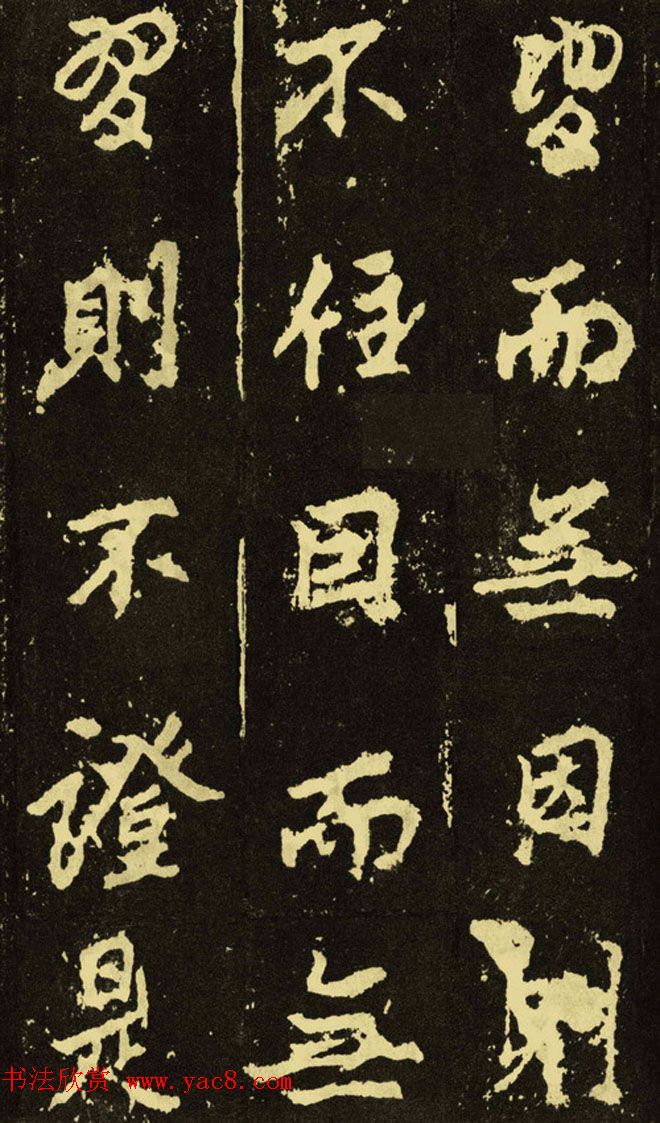 習而無因則
不住因而無
習則不證是
书法欣赏 www.yac8.com